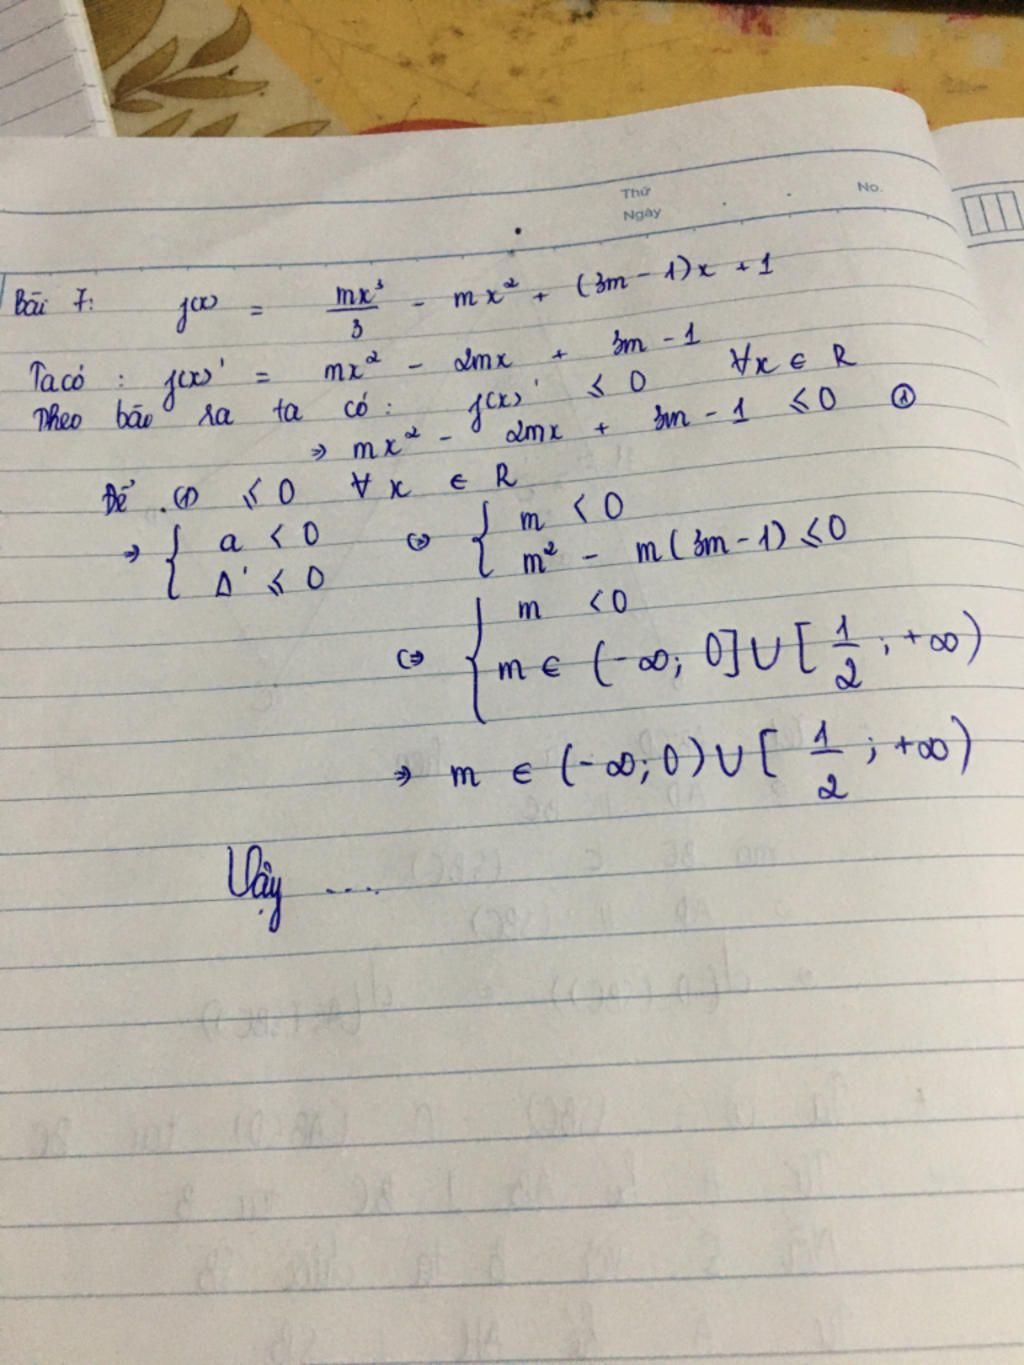 Thứ
Ngày
No.
Bài 7: f(x) = mx³/3 - mx² + (3m - 1)x + 1
Ta có : f(x)' = mx² - 2mx + 3m - 1
Theo bão ra ta có : f(x)' ≤ 0 ∀x ∈ R
⇒ mx² - 2mx + 3m - 1 ≤ 0 ①
Để (1) ≤ 0 ∀ x ∈ R
⇒ { a < 0 ⇔ { m < 0
Δ' ≤ 0 m² - m(3m - 1) ≤ 0
⇔ { m < 0
m ∈ (-∞; 0] ∪ [1/2; +∞)
⇒ m ∈ (-∞; 0) ∪ [1/2; +∞)
Vậy ....